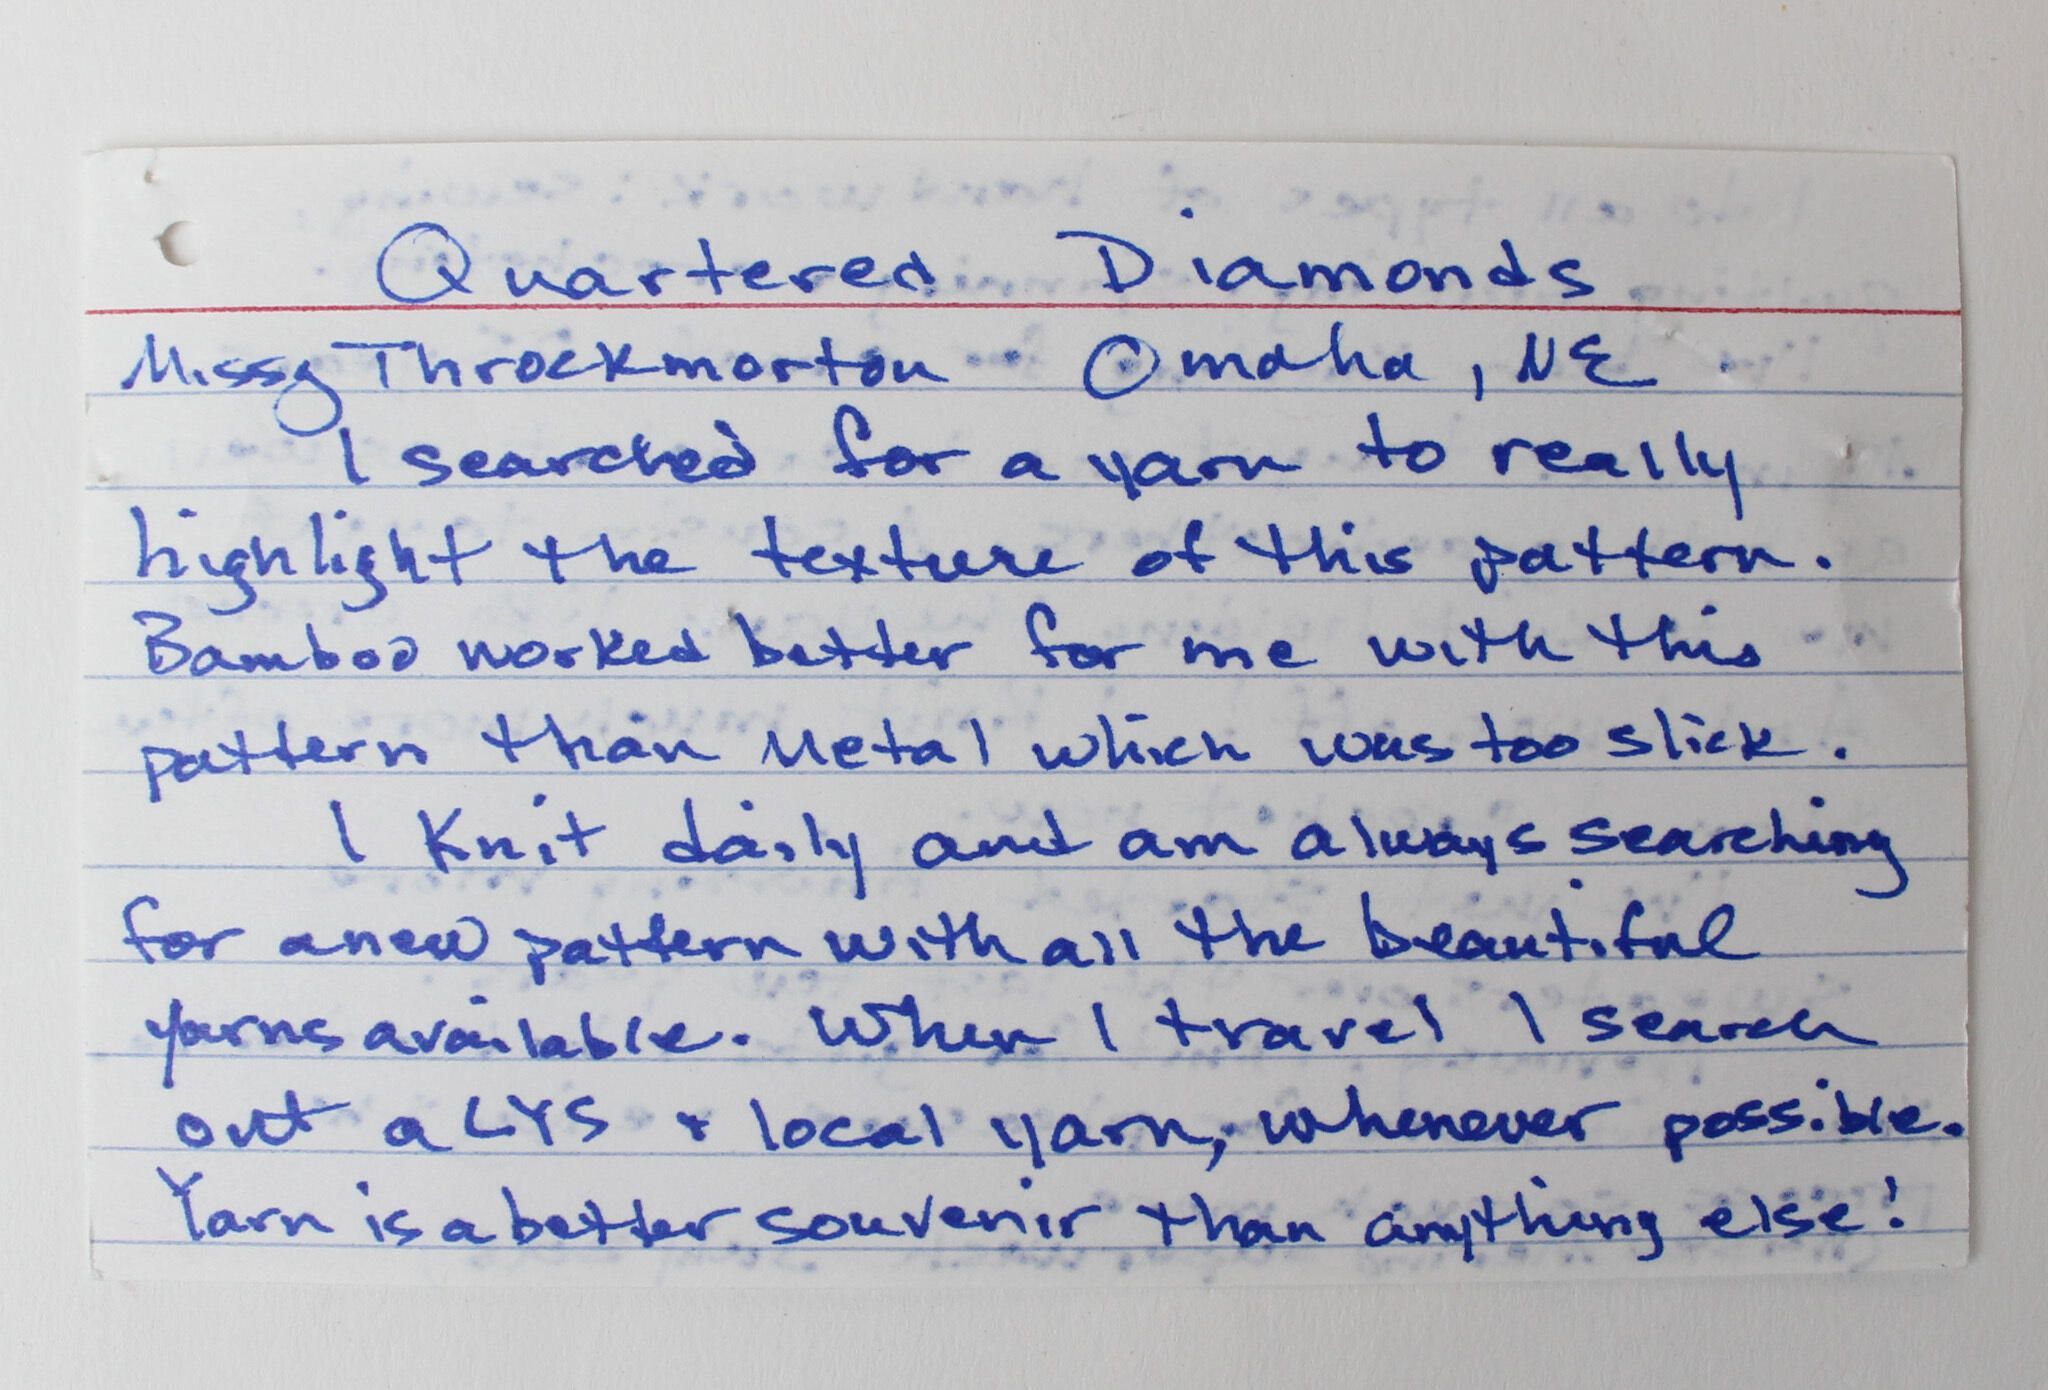 Quartered Diamonds
Missy Throckmorton Omaha, NE
I searched for a yarn to really
highlight the texture of this pattern.
Bamboo worked better for me with this
pattern than Metal which was too slick.
I Knit daily and am always searching
for a new pattern with all the beautiful
yarns available. When I travel I search
out a LYS & local yarn, whenever possible.
Yarn is a better souvenir than anything else!